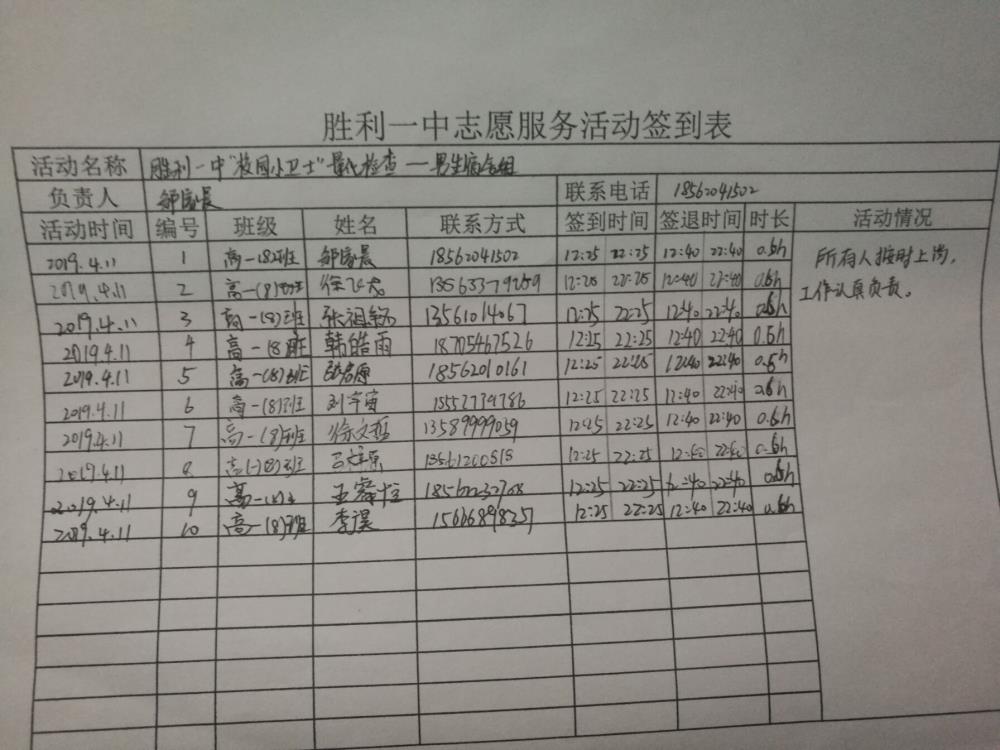 胜利一中志愿服务活动签到表
活动名称 胜利一中"校园小卫士"量化检查——男生宿舍组
负责人 邹家晨 联系电话 18562041502
活动时间 编号 班级 姓名 联系方式 签到时间 签退时间 时长 活动情况
2019.4.11 1 高一(8)班 邹家晨 18562041502 12:25 22:25 12:40 22:40 0.5h 所有人按时上岗,
2019.4.11 2 高一(8)班 12:25 22:25 12:40 22:40 0.5h 工作认真负责。
2019.4.11 3 高一(8)班 13561014067 12:25 22:25 12:40 22:40 0.5h
2019.4.11 4 高一(8)班 韩皓雨 18705467526 12:25 22:25 12:40 22:40 0.5h
2019.4.11 5 高一(8)班 18562010161 12:25 22:25 12:40 22:40 0.5h
2019.4.11 6 高一(8)班 刘宇宙 15552734786 12:25 22:25 12:40 22:40 0.5h
2019.4.11 7 高一(8)班 徐文哲 13589999059 12:25 22:25 12:40 22:40 0.5h
2019.4.11 8 高一(8)班 12:25 22:25 12:40 22:40 0.5h
2019.4.11 9 高一(8)班 12:25 22:25 12:40 22:40 0.5h
2019.4.11 10 高一(8)班 12:25 22:25 12:40 22:40 0.5h